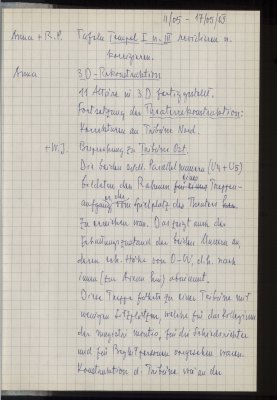 11/05 - 17/05/
Anna + R.P. Tafeln Tempel I u. III revidieren u.
korrigieren.
Anna 3D-Rekonstruktion
11 Altäre in 3D fertiggestellt.
Fortsetzung der Theaterrekonstruktion:
Korrekturen an Tribüne Nord.
+ W.J. Besprechung zu Tribüne Ost.
Die beiden südl. Parallelmauern (U4 + U5)
bildeten den Rahmen für eine Treppen-
aufgang, vom Spielplatz des Theaters
zu erreichen war. Das zeigt auch der
Erhaltungszustand der beiden Mauern an,
deren erh. Höhe von O-W, d.h. nach
innen (zur Arena hin) abnimmt.
Diese Treppe führte zu einer Tribüne mit
wenigen Sitzplätzen, welche für das Kollegium
der magistri montis, für die Schiedsrichter
und für Begleitpersonen vorgesehen waren.
Konstruktion d. Tribüne wie an der